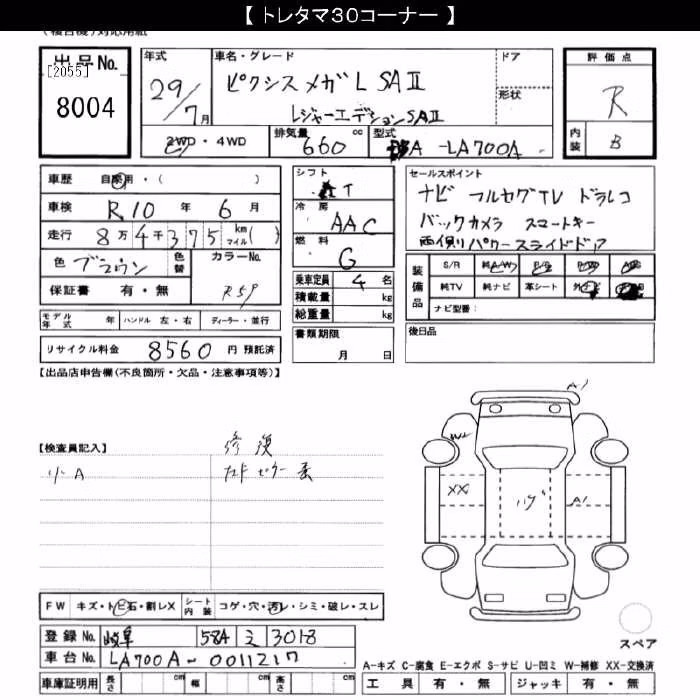 【 トレタマ30コーナー 】
(複合機)対応用紙
出品No.
[2055]
8004
年式
29/7月
車名・グレード
ピクシスメガL SAⅡ
レジャーエディションSAⅡ
ドア
形状
評価点
R
内装
B
2WD・4WD
排気量
660 cc
型式
-LA700A
車歴 自家用・( )
車検 R10年 6月
走行 8万4千375 km マイル( )
色 ブラウン
色替
カラーNo.
R59
保証書 有・無
モデル年式 年 ハンドル 左・右 ディーラー・並行
リサイクル料金 8560 円 預託済
シフト
AT
冷房
AAC
燃料
G
乗車定員 4 名
積載量 kg
総重量 kg
書類期限
月 日
セールスポイント
ナビ フルセグTV ドラレコ
バックカメラ スマートキー
両側パワースライドドア
装備品
S/R 純A/W P/S P/W A/B
純TV 純ナビ 革シート 外ナビ
ナビ型番:
後日品
【出品店申告欄(不良箇所・欠品・注意事項等)】
【検査員記入】
小A
修復
A1
W2
XX
A1
FW キズ・トビ石・割レX
シート内装 コゲ・穴・汚レ・シミ・破レ・スレ
登録No. 岐阜 584 ミ 3018
車台No. LA700A-0011217
車庫証明用 長さ cm 幅 cm 高さ cm
スペア
A-キズ C-腐食 E-エクボ S-サビ U-凹ミ W-補修 XX-交換済
工具 有・無 ジャッキ 有・無